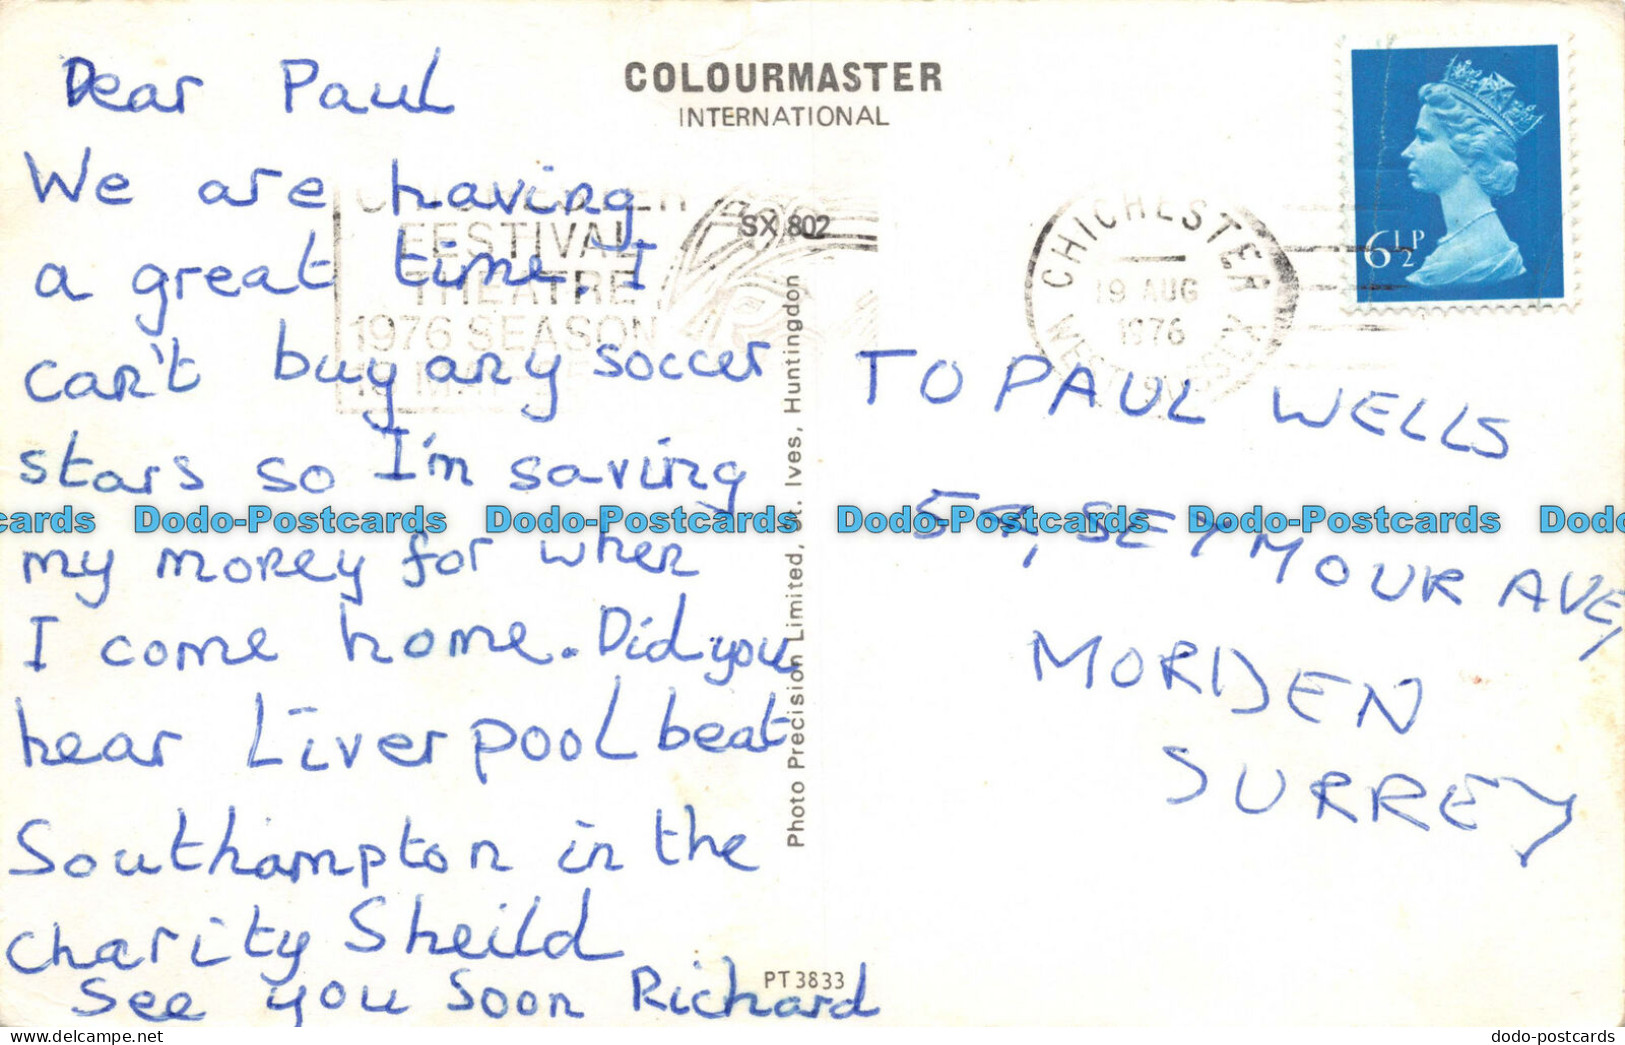 Dear Paul
We are having
a great time. I
can't buy any soccer
stars so I'm saving
my money for when
I come home. Did you
hear Liverpool beat
Southampton in the
charity Sheild
See you Soon Richard
COLOURMASTER
INTERNATIONAL
SX 802
FESTIVAL
THEATRE
1976 SEASON
CHICHESTER
19 AUG
1976
6½P
Photo Precision Limited, St. Ives, Huntingdon
TO PAUL WELLS
SEYMOUR AVE,
MORDEN
SURREY
PT3833
Dodo-Postcards Dodo-Postcards Dodo-Postcards Dodo-Postcards
dodo-postcards.com